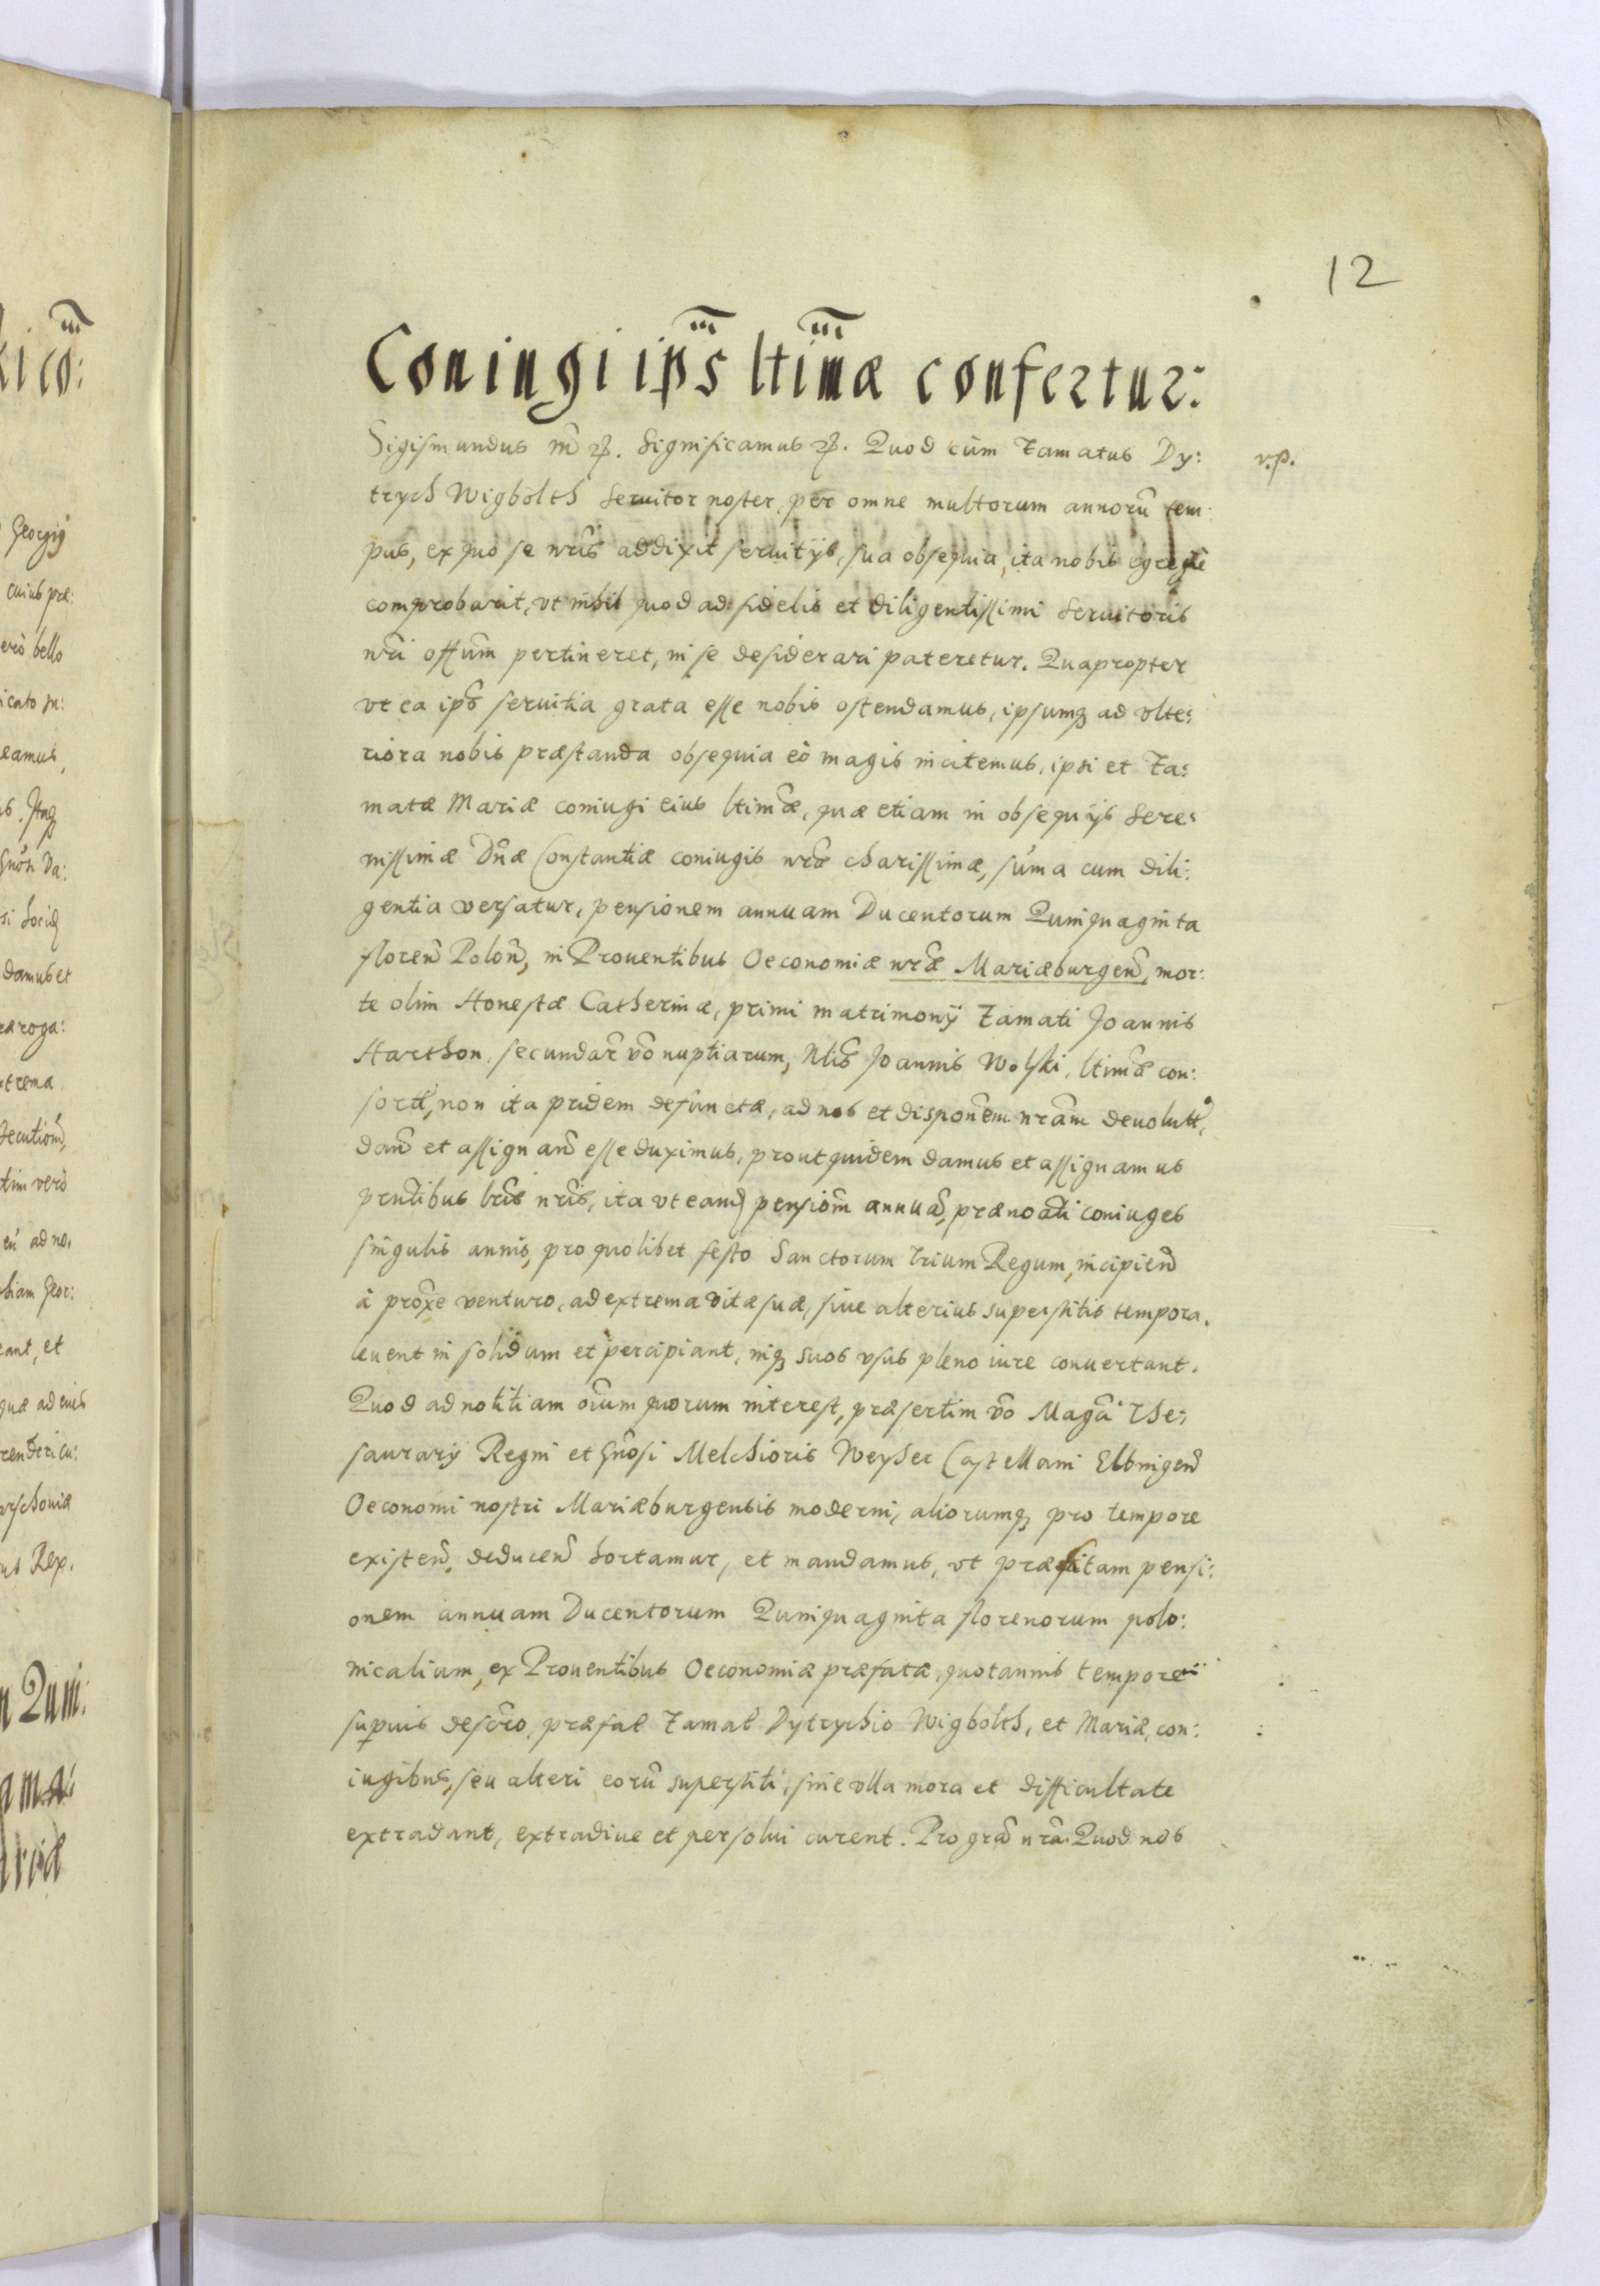 12
Coniugi ipīs ltīmæ confertur:
Sigismundus m̄ etc. Significamus etc. Quod cùm Famatus Dy:
v.p.
trych Wigbolth Seruitor noster, per omne multorum annorū tem:
pus, ex quo se nrīs addixit seruitijs, sua obsequia, ita nobis egregiè
comprobarit, vt nihil quod ad fidelis et diligentissimi Seruitoris
nrī offūm pertineret, in se desiderari pateretur. Quapropter
vt ea ipīs seruitia grata esse nobis ostendamus, ipsumq; ad vlte:
riora nobis præstanda obsequia eò magis incitemus, ipsi et Fa:
matæ Mariæ coniugi eius ltimæ, quæ etiam in obsequijs Sere:
nissimæ Dnæ Constantiæ coniugis nræ charissimæ, sūma cum dili:
gentia versatur, pensionem annuam Ducentorum Quinquaginta
floren̄ Polon̄, in Prouentibus Oeconomiæ nræ Mariæburgen̄, mor:
te olim Honestæ Catherinæ, primi matrimonij Famati Joannis
Harthon, secundar̄ vō nuptiarum, Nlis̄ Joannis Wolski, ltimæ con:
sortis, non ita pridem defunctæ, ad nos et dispōnem nrām deuolut̄,
dan̄ et assignan̄ esse duximus, prout quidem damus et assignamus
pnt̄ibus lrīs nrīs, ita vt eand̄ pensiōm annuā, prænoāti coniuges
singulis annis, pro quolibet festo Sanctorum Trium Regum, incipien̄
à prox̄e venturo, ad extrema vitæ suæ, siue alterius superstitis tempora,
leuent in solidum et percipiant, inq; suos vsus pleno iure conuertant.
Quod ad notitiam oīum quorum interest, præsertim vō Magci The:
saurarij Regni et Gn̄osi Melchioris Weyher Castellani Elbingen̄
Oeconomi nostri Mariæburgensis moderni, aliorumq; pro tempore
existen̄, deducen̄ hortamur, et mandamus, vt præfatam pensi:
onem annuam Ducentorum Quinquaginta florenorum polo:
nicalium, ex Prouentibus Oeconomiæ præfatæ, quotannis tempore
superius descr̄o, præfat̄ Famat̄ Dytrychio Wigbolth, et Mariæ, con:
iugibus, seu alteri eorū superstiti, sine vlla mora et difficultate
extradant, extradiue et persolui curent. Pro grā nrā. Quod nos